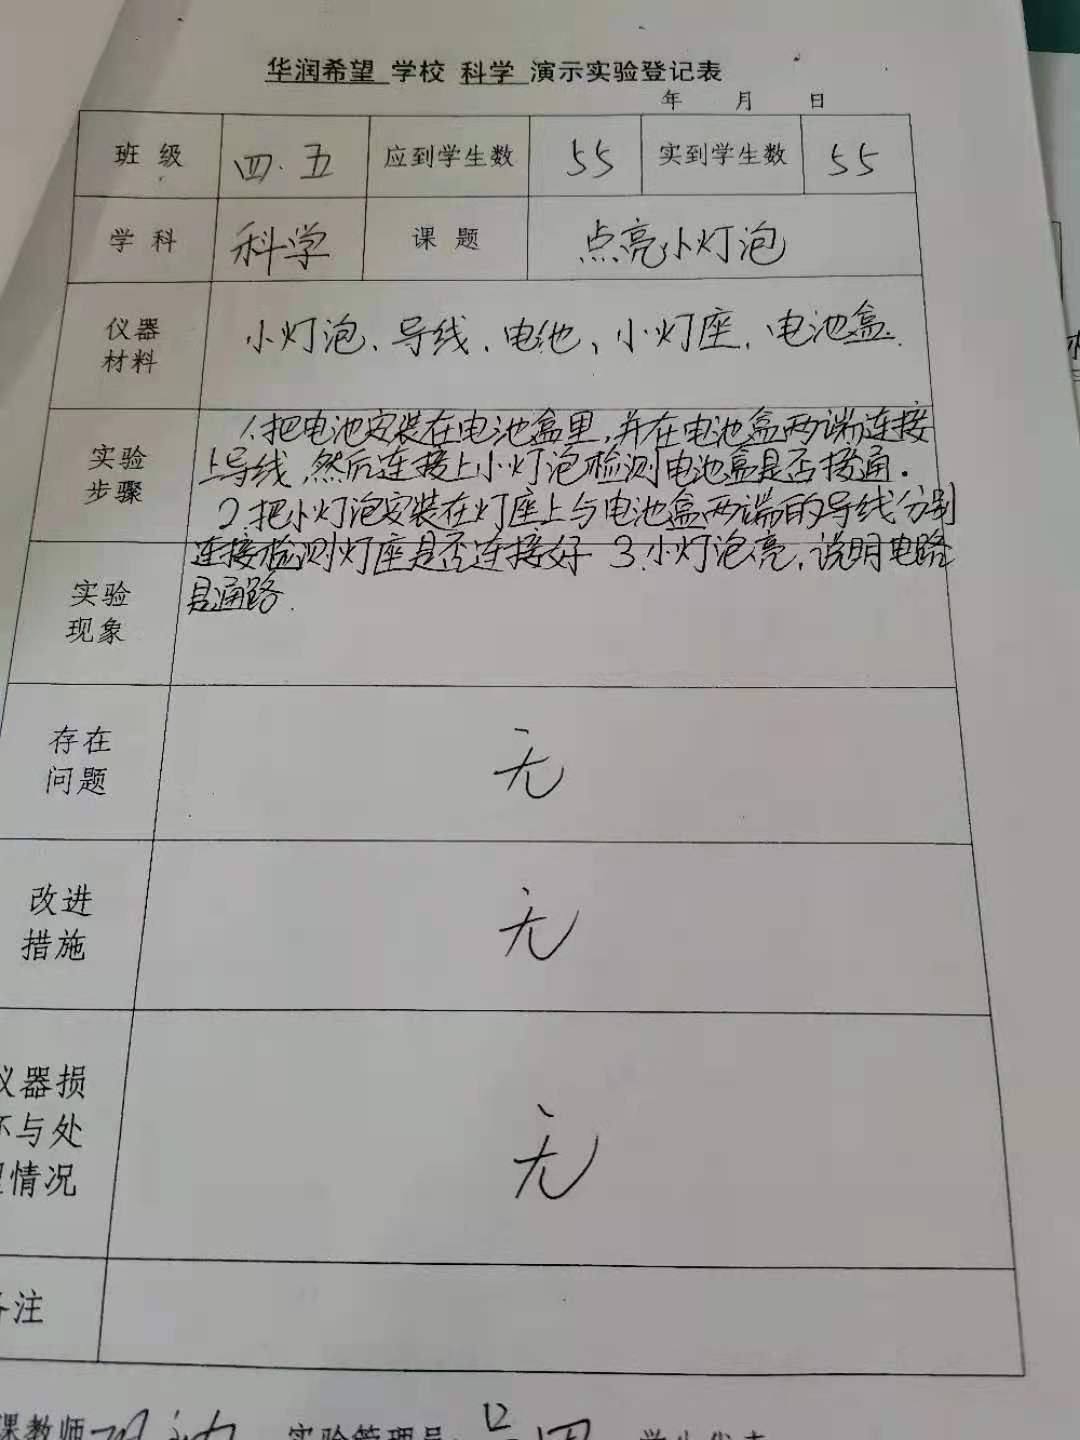 华润希望 学校 科学 演示实验登记表
年 月 日
班级 四.五 应到学生数 55 实到学生数 55
学科 科学 课题 点亮小灯泡
仪器
材料
小灯泡、导线、电池、小灯座、电池盒.
实验
步骤
1.把电池安装在电池盒里,并在电池盒两端连接
上导线,然后连接上小灯泡检测电池盒是否接通.
2.把小灯泡安装在灯座上与电池盒两端的导线分别
连接检测灯座是否连接好 3.小灯泡亮,说明电路
是通路.
实验
现象
存在
问题
无
改进
措施
无
仪器损
坏与处
理情况
无
备注
课教师 实验管理员: 学生代表